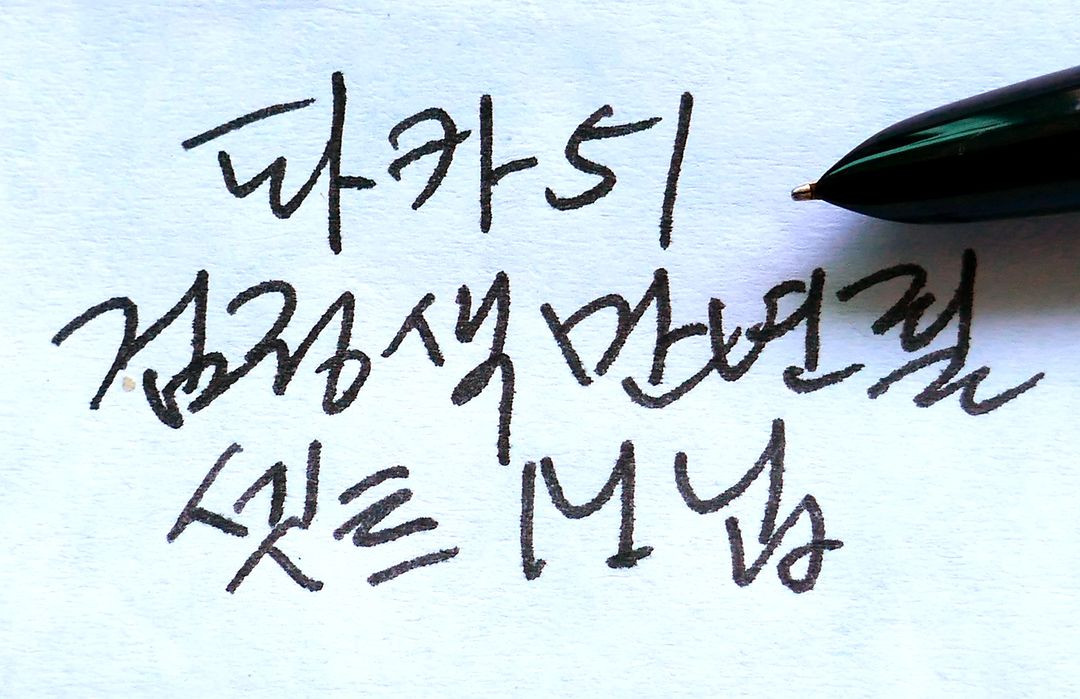 파카 51
검정색 만년필
셋트 12 님